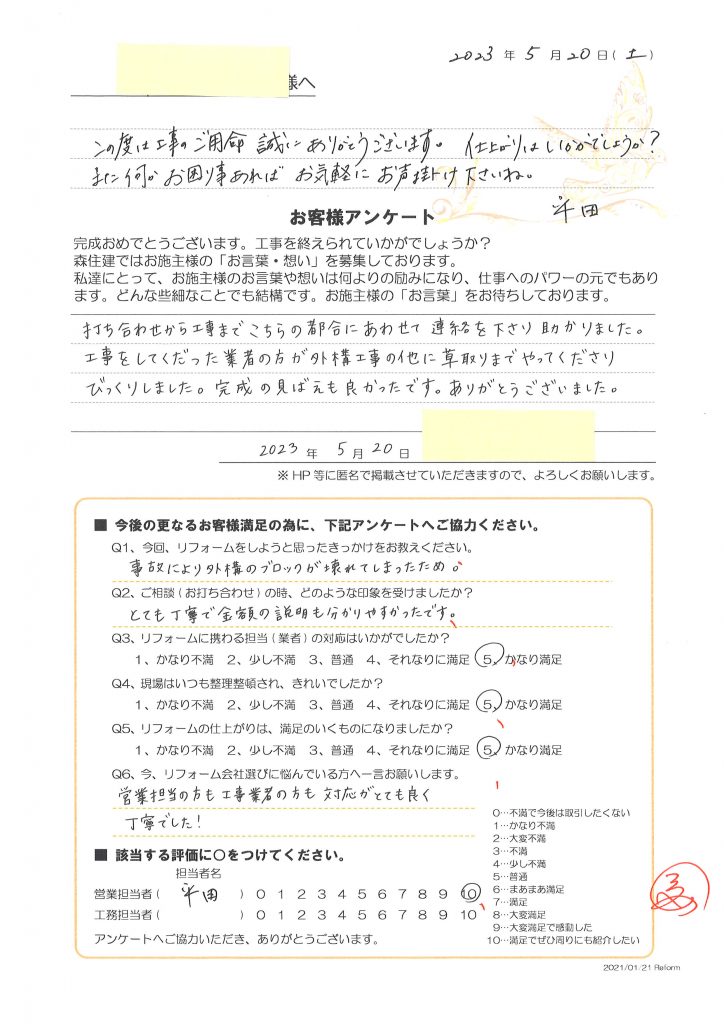 2023年 5月 20日(土)
様へ
この度は工事のご用命 誠にありがとうございます。 仕上がりはいかがでしょうか?
また何かお困り事あれば お気軽にお声掛け下さいね。
半田
お客様アンケート
完成おめでとうございます。工事を終えられていかがでしょうか?
森住建ではお施主様の「お言葉・想い」を募集しております。
私達にとって、お施主様のお言葉や想いは何よりの励みになり、仕事へのパワーの元でもあり
ます。どんな些細なことでも結構です。お施主様の「お言葉」をお待ちしております。
打ち合わせから工事までこちらの都合にあわせて 連絡を下さり 助かりました。
工事をしてくだった業者の方が外構工事の他に草取りまでやってくださり
びっくりしました。完成の見ばえも良かったです。ありがとうございました。
2023年 5月 20日
※HP等に匿名で掲載させていただきますので、よろしくお願いします。
■ 今後の更なるお客様満足の為に、下記アンケートへご協力ください。
Q1、今回、リフォームをしようと思ったきっかけをお教えください。
事故により外構のブロックが壊れてしまったため。
Q2、ご相談(お打ち合わせ)の時、どのような印象を受けましたか?
とても丁寧で金額の説明も分かりやすかったです。
Q3、リフォームに携わる担当(業者)の対応はいかがでしたか?
1、かなり不満 2、少し不満 3、普通 4、それなりに満足 5、かなり満足
Q4、現場はいつも整理整頓され、きれいでしたか?
1、かなり不満 2、少し不満 3、普通 4、それなりに満足 5、かなり満足
Q5、リフォームの仕上がりは、満足のいくものになりましたか?
1、かなり不満 2、少し不満 3、普通 4、それなりに満足 5、かなり満足
Q6、今、リフォーム会社選びに悩んでいる方へ一言お願いします。
営業担当の方も工事業者の方も 対応がとても良く
丁寧でした!
0…不満で今後は取引したくない
1…かなり不満
2…大変不満
3…不満
4…少し不満
5…普通
6…まあまあ満足
7…満足
8…大変満足
9…大変満足で感動した
10…満足でぜひ周りにも紹介したい
■ 該当する評価に○をつけてください。
担当者名
営業担当者( 半田 ) 0 1 2 3 4 5 6 7 8 9 10
工務担当者( ) 0 1 2 3 4 5 6 7 8 9 10
アンケートへご協力いただき、ありがとうございます。
2021/01/21 Reform